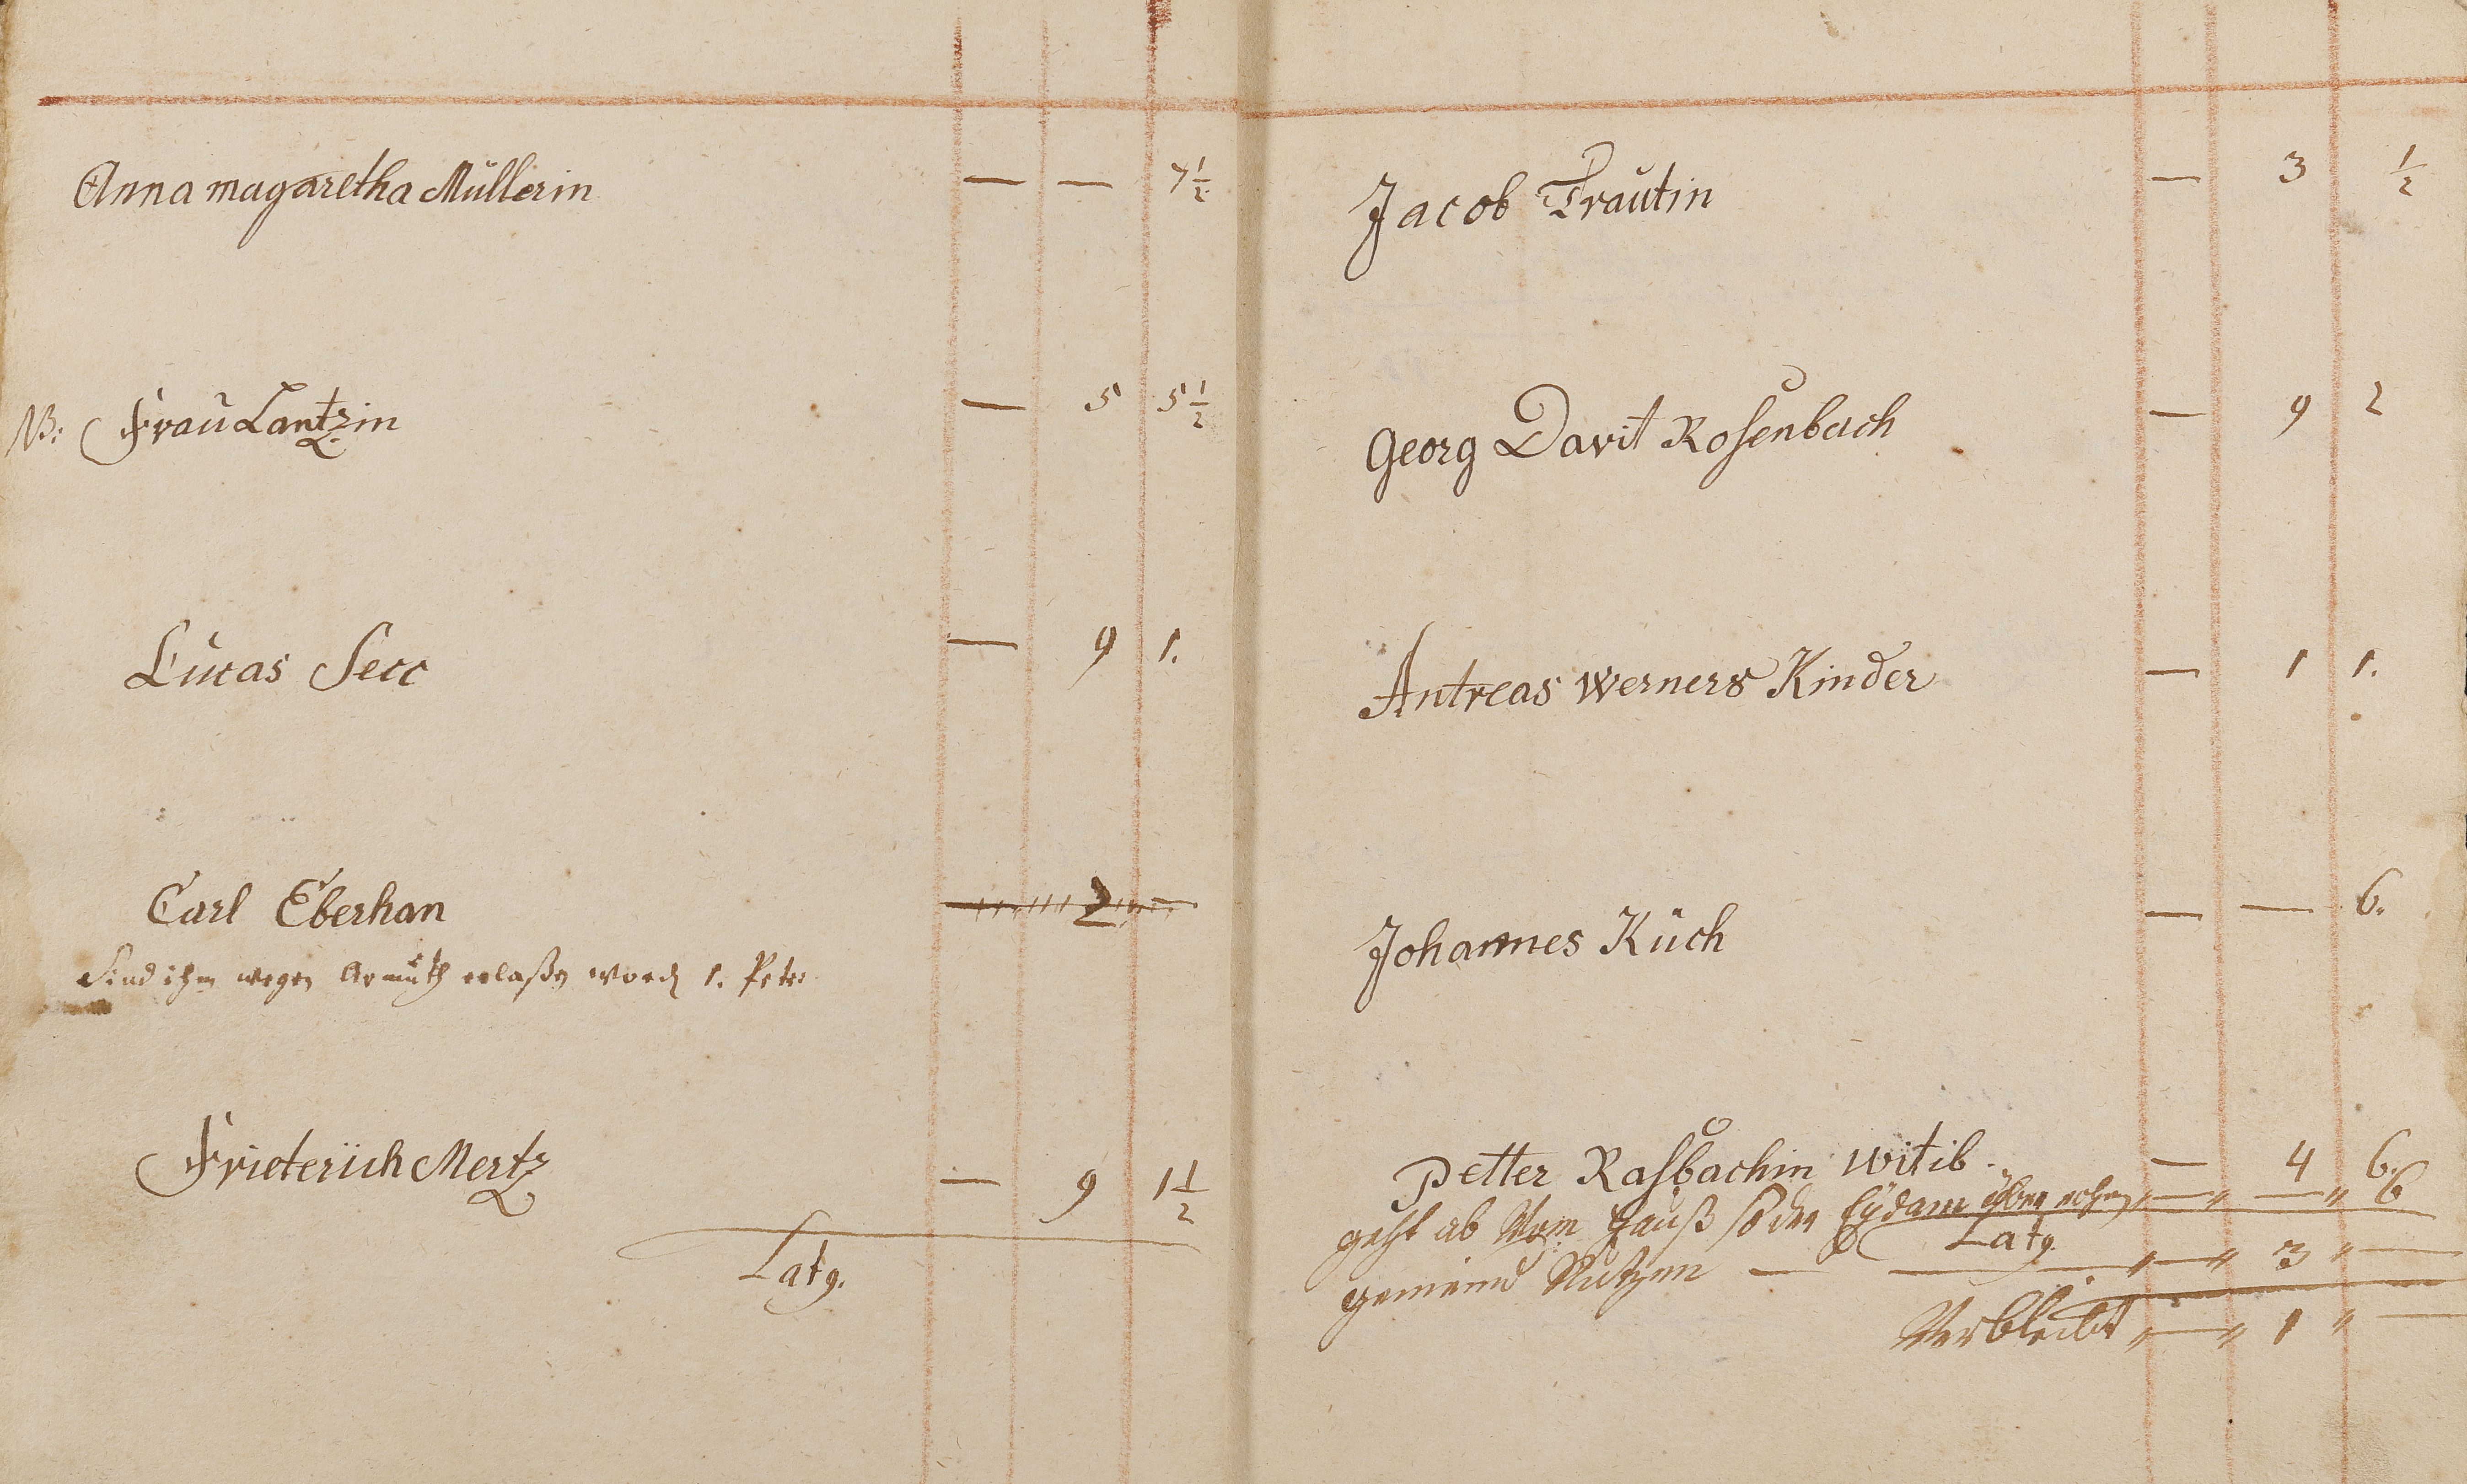 Anna magaretha Müllerin — — 7 1/2
NB: Frau Lantzin — 5 5 1/2
Lucas Secc — 9 1.
Carl Eberhan — 2 —
Sind ihm wegen Armuth erlaßen worden 1. Petr:
Frieterich Mertz — 9 1 1/2
Latg.
Jacob Trautin — 3 1/2
Georg Davit Rosenbach — 9 2
Antreas Werners Kinder — 1 1.
Johannes Küch — — 6.
Petter Rasbachin witib. — 4 6.
geht ab Vom Hauß so der Eydam — " — " 6
Latg.
gemeind Nutzen — " — " 3 " —
Verbleibt " — " 1 " —